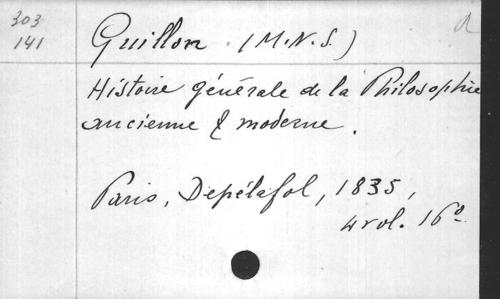 303
141
Guillon (M.N.S.)
a
Histoire générale de la Philosophie
ancienne & moderne.
Paris, Depélafol, 1835,
4 vol. 16º